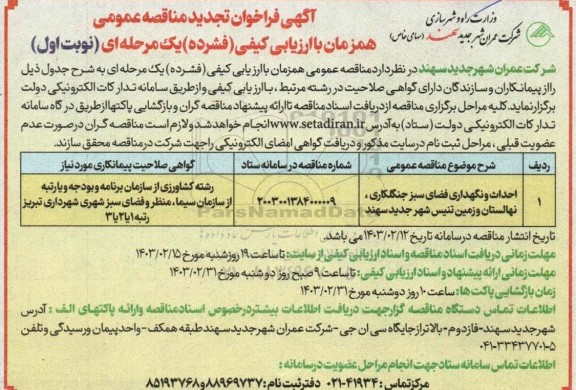 وزارت راه و شهرسازی
شرکت عمران شهر جدید سهند (سهامی خاص)
آگهی فراخوان تجدید مناقصه عمومی
همزمان با ارزیابی کیفی (فشرده) یک مرحله ای (نوبت اول)
شرکت عمران شهر جدید سهند در نظر دارد مناقصه عمومی همزمان با ارزیابی کیفی (فشرده) یک مرحله ای به شرح جدول ذیل
را از پیمانکاران و سازندگان دارای گواهی صلاحیت در رشته مرتبط ، با ارزیابی کیفی و از طریق سامانه تدارکات الکترونیکی دولت
برگزار نماید. کلیه مراحل برگزاری مناقصه از دریافت اسناد مناقصه تا ارائه پیشنهاد مناقصه گران و بازگشایی پاکتها از طریق درگاه سامانه
تدارکات الکترونیکی دولت (ستاد) به آدرس www.setadiran.ir انجام خواهد شد و لازم است مناقصه گران در صورت عدم
عضویت قبلی ، مراحل ثبت نام در سایت مذکور و دریافت گواهی امضای الکترونیکی را جهت شرکت در مناقصه محقق سازند.
ردیف شرح موضوع مناقصه عمومی شماره مناقصه در سامانه ستاد گواهی صلاحیت پیمانکاری مورد نیاز
۱ احداث و نگهداری فضای سبز جنگلکاری ، نهالستان و زمین تنیس شهر جدید سهند ۲۰۰۳۰۰۱۳۸۴۰۰۰۰۰۹ رشته کشاورزی از سازمان برنامه و بودجه و یا رتبه از سازمان سیما، منظر و فضای سبز شهری شهرداری تبریز رتبه ۱ یا ۲ یا ۳
ParsNamadData
تاریخ انتشار مناقصه در سامانه تاریخ ۱۴۰۳/۰۲/۱۲ می باشد.
مهلت زمانی دریافت اسناد مناقصه و اسناد ارزیابی کیفی از سایت: تا ساعت ۱۹ روز شنبه مورخ ۱۴۰۳/۰۲/۱۵
مهلت زمانی ارائه پیشنهاد و اسناد ارزیابی کیفی: تا ساعت ۹ صبح روز دوشنبه مورخ ۱۴۰۳/۰۲/۳۱
زمان بازگشایی پاکت ها: ساعت ۱۰ روز دوشنبه مورخ ۱۴۰۳/۰۲/۳۱
اطلاعات تماس دستگاه مناقصه گزار جهت دریافت اطلاعات بیشتر در خصوص اسناد مناقصه و ارائه پاکتهای الف : آدرس
شهر جدید سهند- فاز دوم- بالاتر از جایگاه سی ان جی - شرکت عمران شهر جدید سهند طبقه همکف - واحد پیمان و رسیدگی و تلفن
۰۴۱-۳۳۴۳۷۷۰۱-۵
اطلاعات تماس سامانه ستاد جهت انجام مراحل عضویت در سامانه :
مرکز تماس : ۴۱۹۳۴-۰۲۱ دفتر ثبت نام : ۸۸۹۶۹۷۳۷ و ۸۵۱۹۳۷۶۸